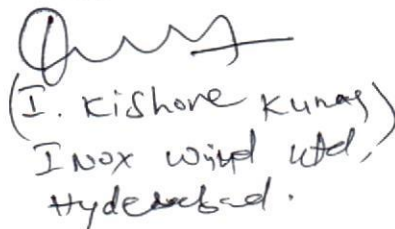 (I. Kishore Kumar)
INOX Wind Ltd,
Hyderabad.